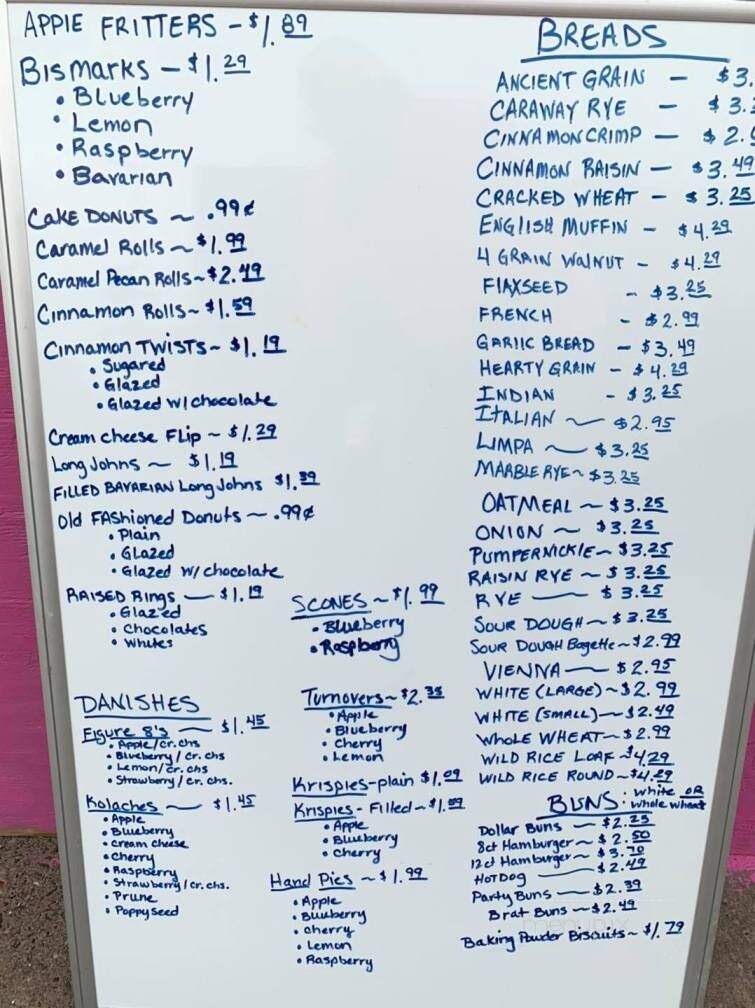 APPlE FRITTERS - $1.89
Bismarks - $1.29
• Blueberry
• Lemon
• Raspberry
• Bavarian
CAKE DONUTS ~ .99¢
Caramel Rolls ~ $1.99
Caramel Pecan Rolls ~ $2.49
Cinnamon Rolls ~ $1.59
Cinnamon TWISTS ~ $1.19
• Sugared
• Glazed
• Glazed w/chocolate
Cream cheese Flip ~ $1.29
Long Johns ~ $1.19
FILLED BAVARIAN Long Johns $1.39
Old FAShioned Donuts ~ .99¢
• Plain
• Glazed
• Glazed w/chocolate
RAISED Rings - $1.19
• Glazed
• Chocolates
• Whites
SCONES ~ $1.99
• Blueberry
• Raspberry
DANISHES
Figure 8's - $1.45
• Apple/cr.chs
• Blueberry/cr.chs
• Lemon/cr.chs
• Strawberry/cr.chs.
Kolaches ~ $1.45
• Apple
• Blueberry
• cream cheese
• Cherry
• Raspberry
• Strawberry/cr.chs.
• Prune
• Poppyseed
Turnovers ~ $2.35
• Apple
• Blueberry
• Cherry
• Lemon
Krispies-plain
Krispies - Filled
• Apple
• Blueberry
• Cherry
Hand Pies ~ $1.99
• Apple
• Bluuberry
• cherry
• Lemon
• Raspberry
BREADS
ANCIENT GRAIN - $3.
CARAWAY RYE - $3.
CINNAMON CRIMP - $2.
CINNAMON RAISIN - $3.49
CRACKED WHEAT - $3.25
ENGLISH MUFFIN - $4.29
4 GRAIN WAlNUT - $4.29
FlAXSEED - $3.25
FRENCH - $2.99
GARlIC BREAD - $3.49
HEARTY GRAIN - $4.29
INDIAN - $3.25
ITALIAN ~ $2.95
LIMPA ~ $3.25
MARBLE RYE ~ $3.25
OATMEAL ~ $3.25
ONION ~ $3.25
PUMPERNICKlE ~ $3.25
RAISIN RYE ~ $3.25
RYE - $3.25
SOUR DOUGH ~ $3.25
SOUR DOUGH Bagette ~ $2.99
VIENNA - $2.95
WHITE (LARGE) ~ $2.99
WHITE (SMALL) - $2.49
WHOLE WHEAT ~ $2.99
WILD RICE LOAF $4.29
WILD RICE ROUND ~ $4.29
BUNS: white OR whole wheat
Dollar Buns - $2.25
8ct Hamburger ~ $2.50
12ct Hamburger ~ $3.70
HOTDOG - $2.49
Party Buns - $2.39
Brat Buns ~ $2.49
Baking Powder Biscuits ~ $1.79